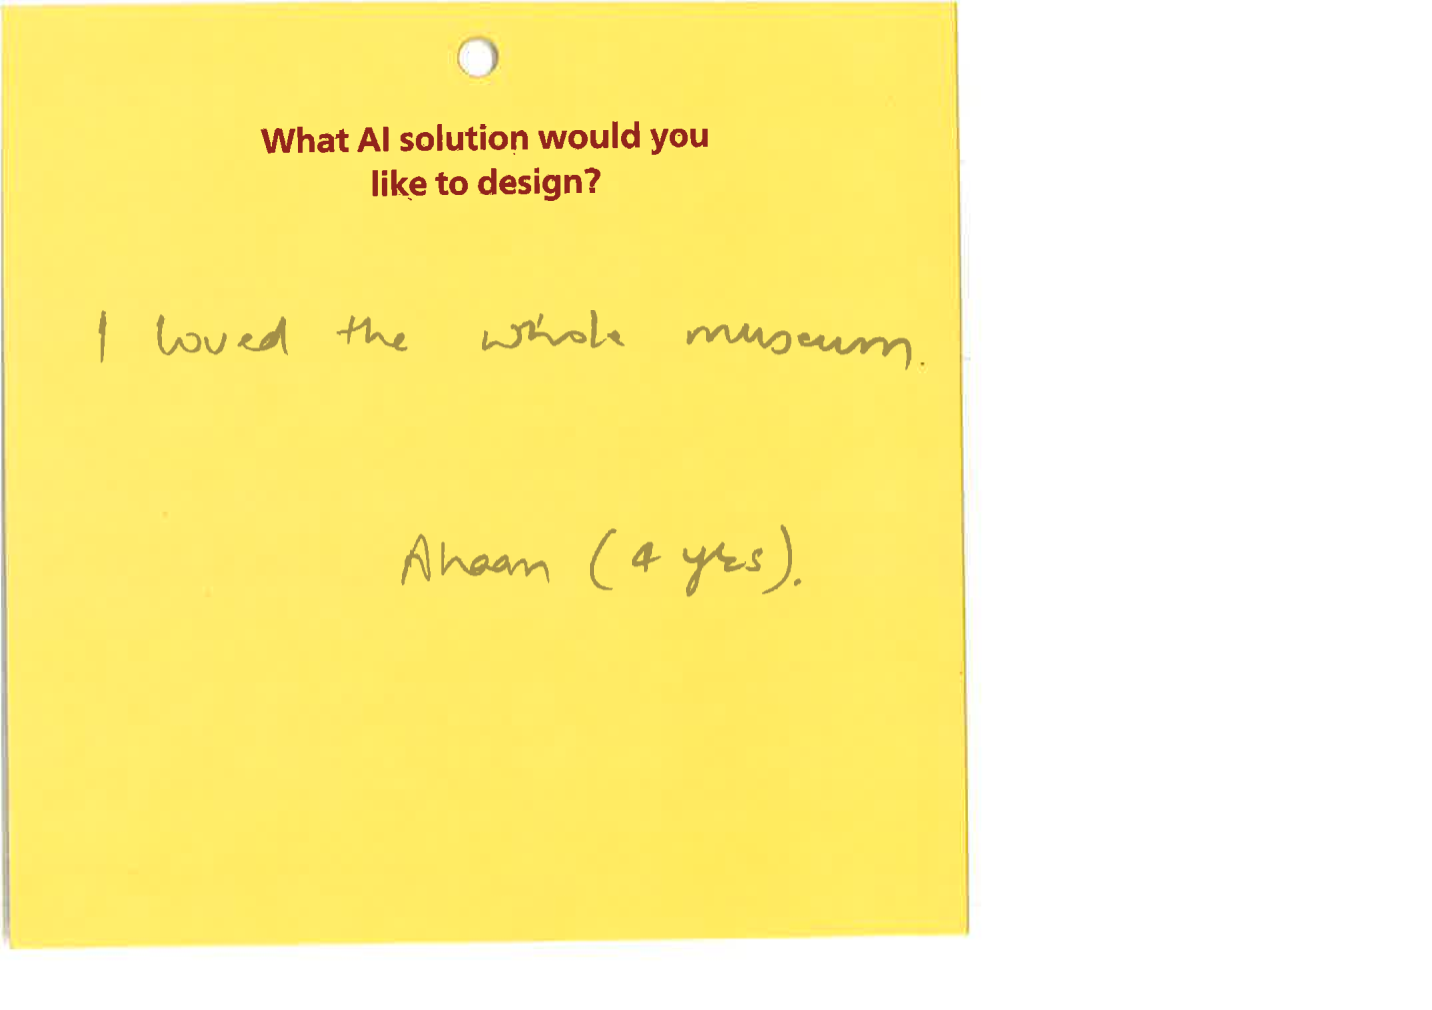 What AI solution would you
like to design?
I loved the whole museum.
Ahaan (4 yrs).